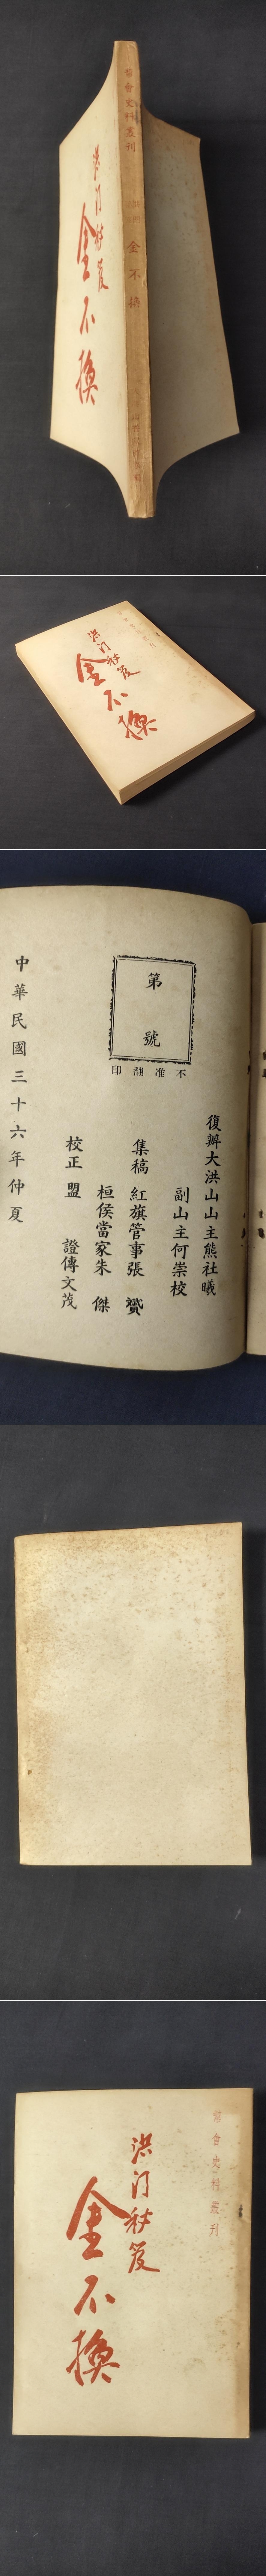 洪門秘笈
金不換
幫會史料叢刊
金不換
洪门秘笈
金不換
第
號
不准翻印
復辦大洪山山主熊社曦
副山主何崇校
集稿 紅旗管事張贇
桓侯當家朱傑
校正 盟證傅文茂
中華民國三十六年仲夏
幫會史料叢刊
洪门秘笈
金不換